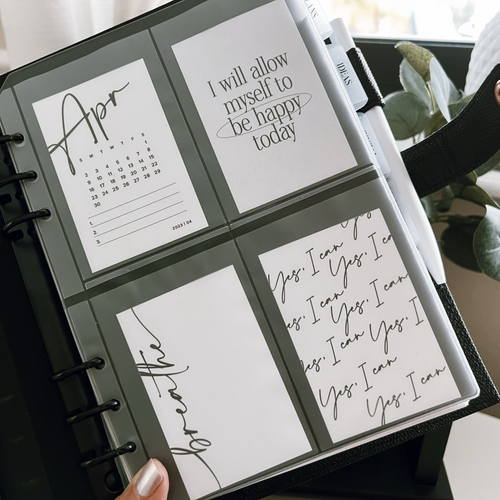 Apr
S M T W T F S
1
2 3 4 5 6 7 8
9 10 11 12 13 14 15
16 17 18 19 20 21 22
23 24 25 26 27 28 29
30
1.
2.
3.
2023 | 04
I will allow
myself to
be happy
today
IDEAS
breathe
Yes, I can Yes, I can
Yes, I can
Yes, I can
Yes, I can
Yes, I can
Yes, I can
Yes, I can
Yes, I can